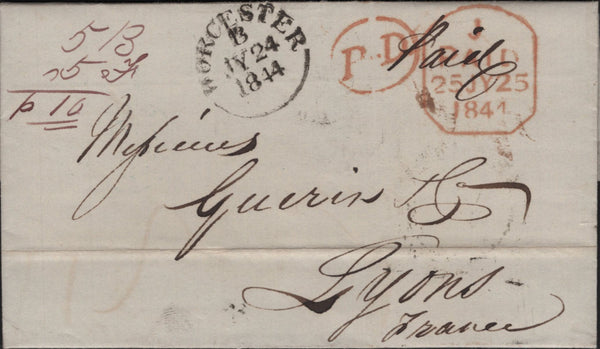 5 B
5 F
p 10
WORCESTER
B
JY 24
1844
P.D
Paid
1
PAID
25 JY 25
1844
Messieurs
Guerin & Co
Lyons
France